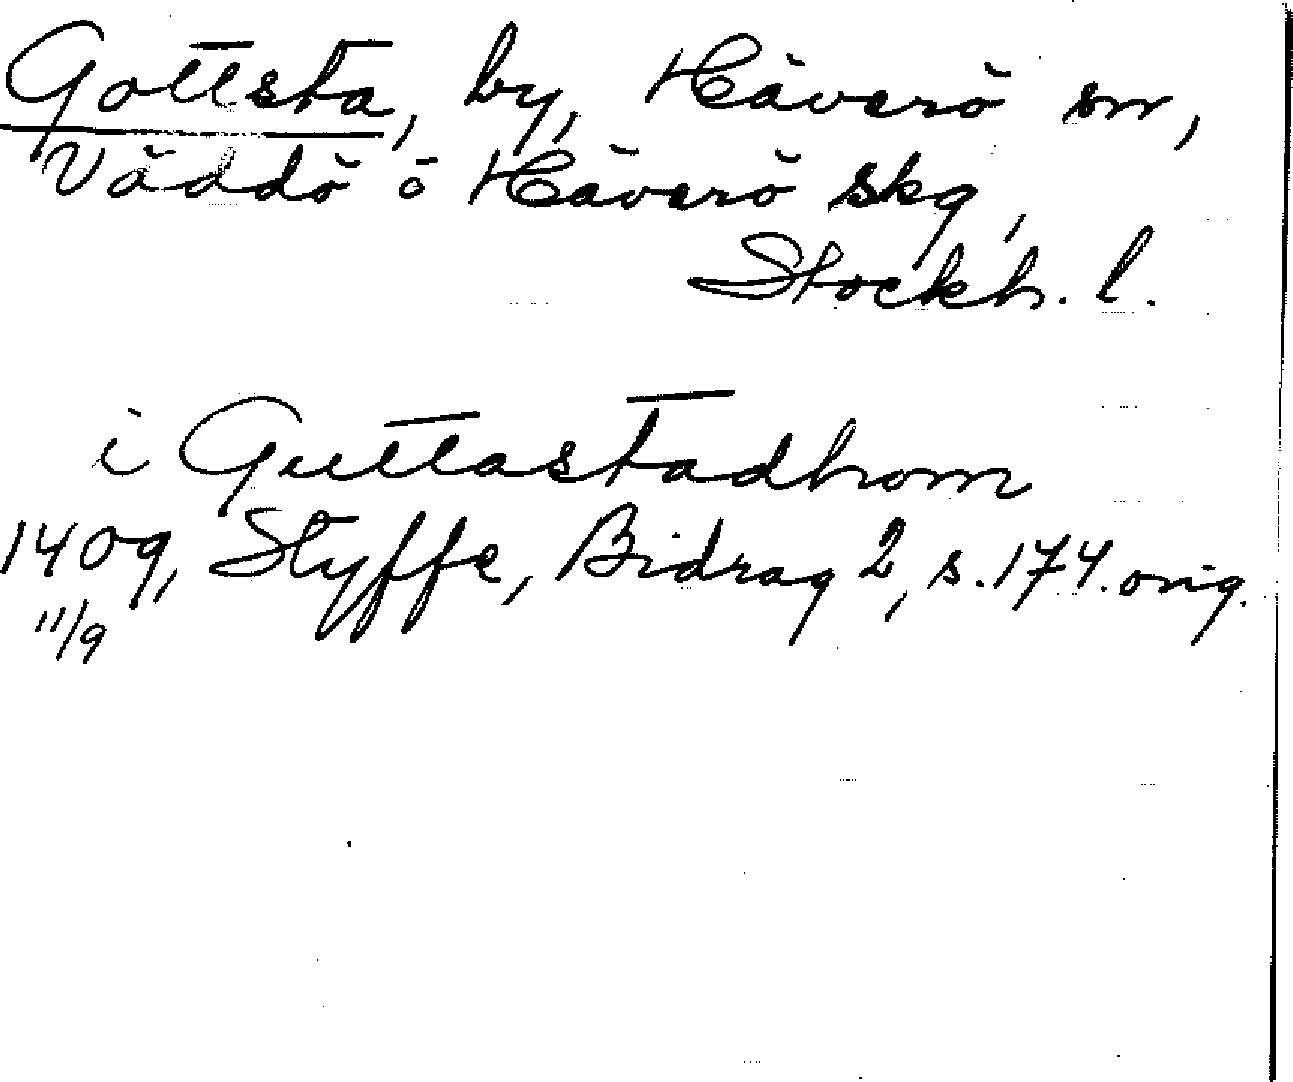 Gottsta, by, Häverö sn,
Väddö o Häverö skg,
Stockh. l.
i Guttastadhom
1409, Styffe, Bidrag 2, s. 174. orig.
11/9